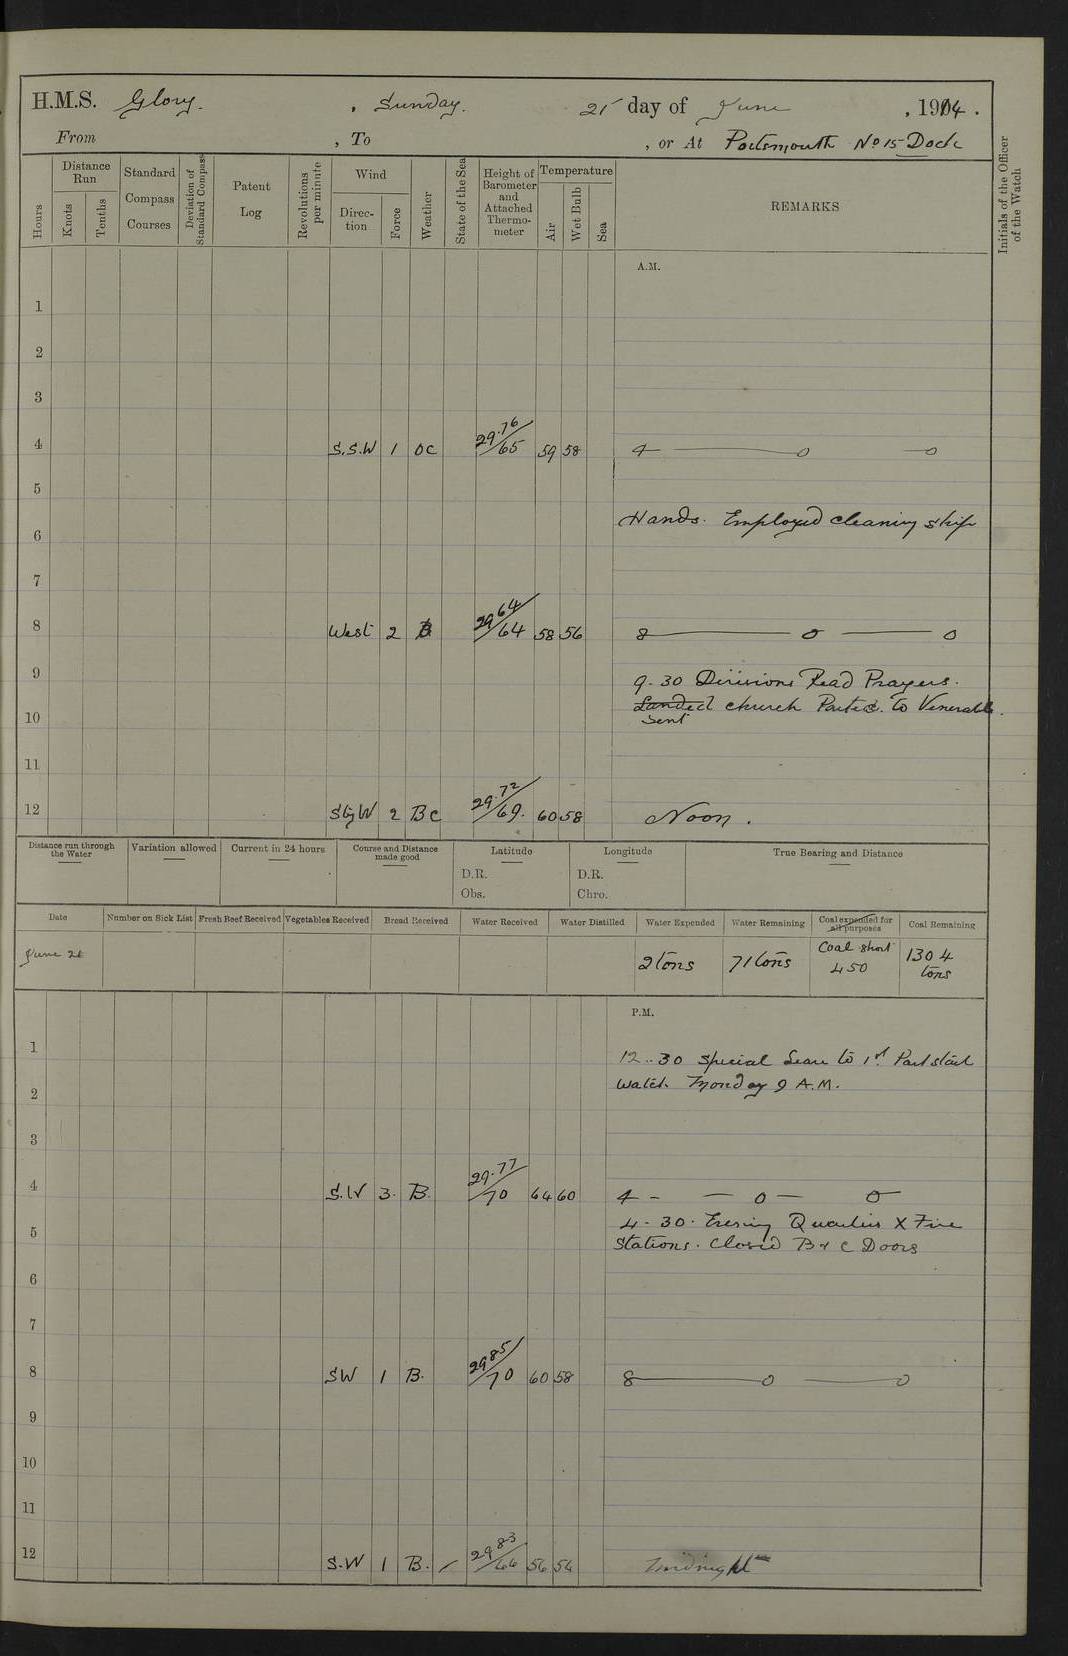 H.M.S. Glory. , Sunday. 21 day of June , 1914 .
From , To , or At Portsmouth No 15 Dock
Hours
Distance Run
Knots
Tenths
Standard Compass Courses
Deviation of Standard Compass
Patent Log
Revolutions per minute
Wind
Direction
Force
Weather
State of the Sea
Height of Barometer and Attached Thermometer
Temperature
Air
Wet Bulb
Sea
REMARKS
Initials of the Officer of the Watch
A.M.
1
2
3
4 S.S.W 1 OC 29.76/65 59 58 4 — o — o
5
Hands. Employed cleaning ship
6
7
8 West 2 B 29 64/64 58 56 8 — o — o
9 9.30 Divisions Read Prayers.
Landed church Parties. to Venerable.
sent
10
11
12 SbyW 2 BC 29.72/69. 60 58 Noon.
Distance run through the Water
Variation allowed
Current in 24 hours
Course and Distance made good
Latitude
D.R.
Obs.
Longitude
D.R.
Chro.
True Bearing and Distance
Date Number on Sick List Fresh Beef Received Vegetables Received Bread Received Water Received Water Distilled Water Expended Water Remaining Coal expended for all purposes Coal Remaining
June 21 2 tons 71 tons Coal short 450 1304 tons
P.M.
1 12..30 Special Leave to 1st Part starb
watch. Monday 9 A.M.
2
3
4 S.W 3. B. 29.77/70 64 60 4 - — o — o
4.30. Evening Quarters X Fire
5 Stations. Closed B & C Doors
6
7
8 SW 1 B. 29 85/70 60 58 8 — o — o
9
10
11
12 S.W 1 B. 29 83/66 56 54 Midnight